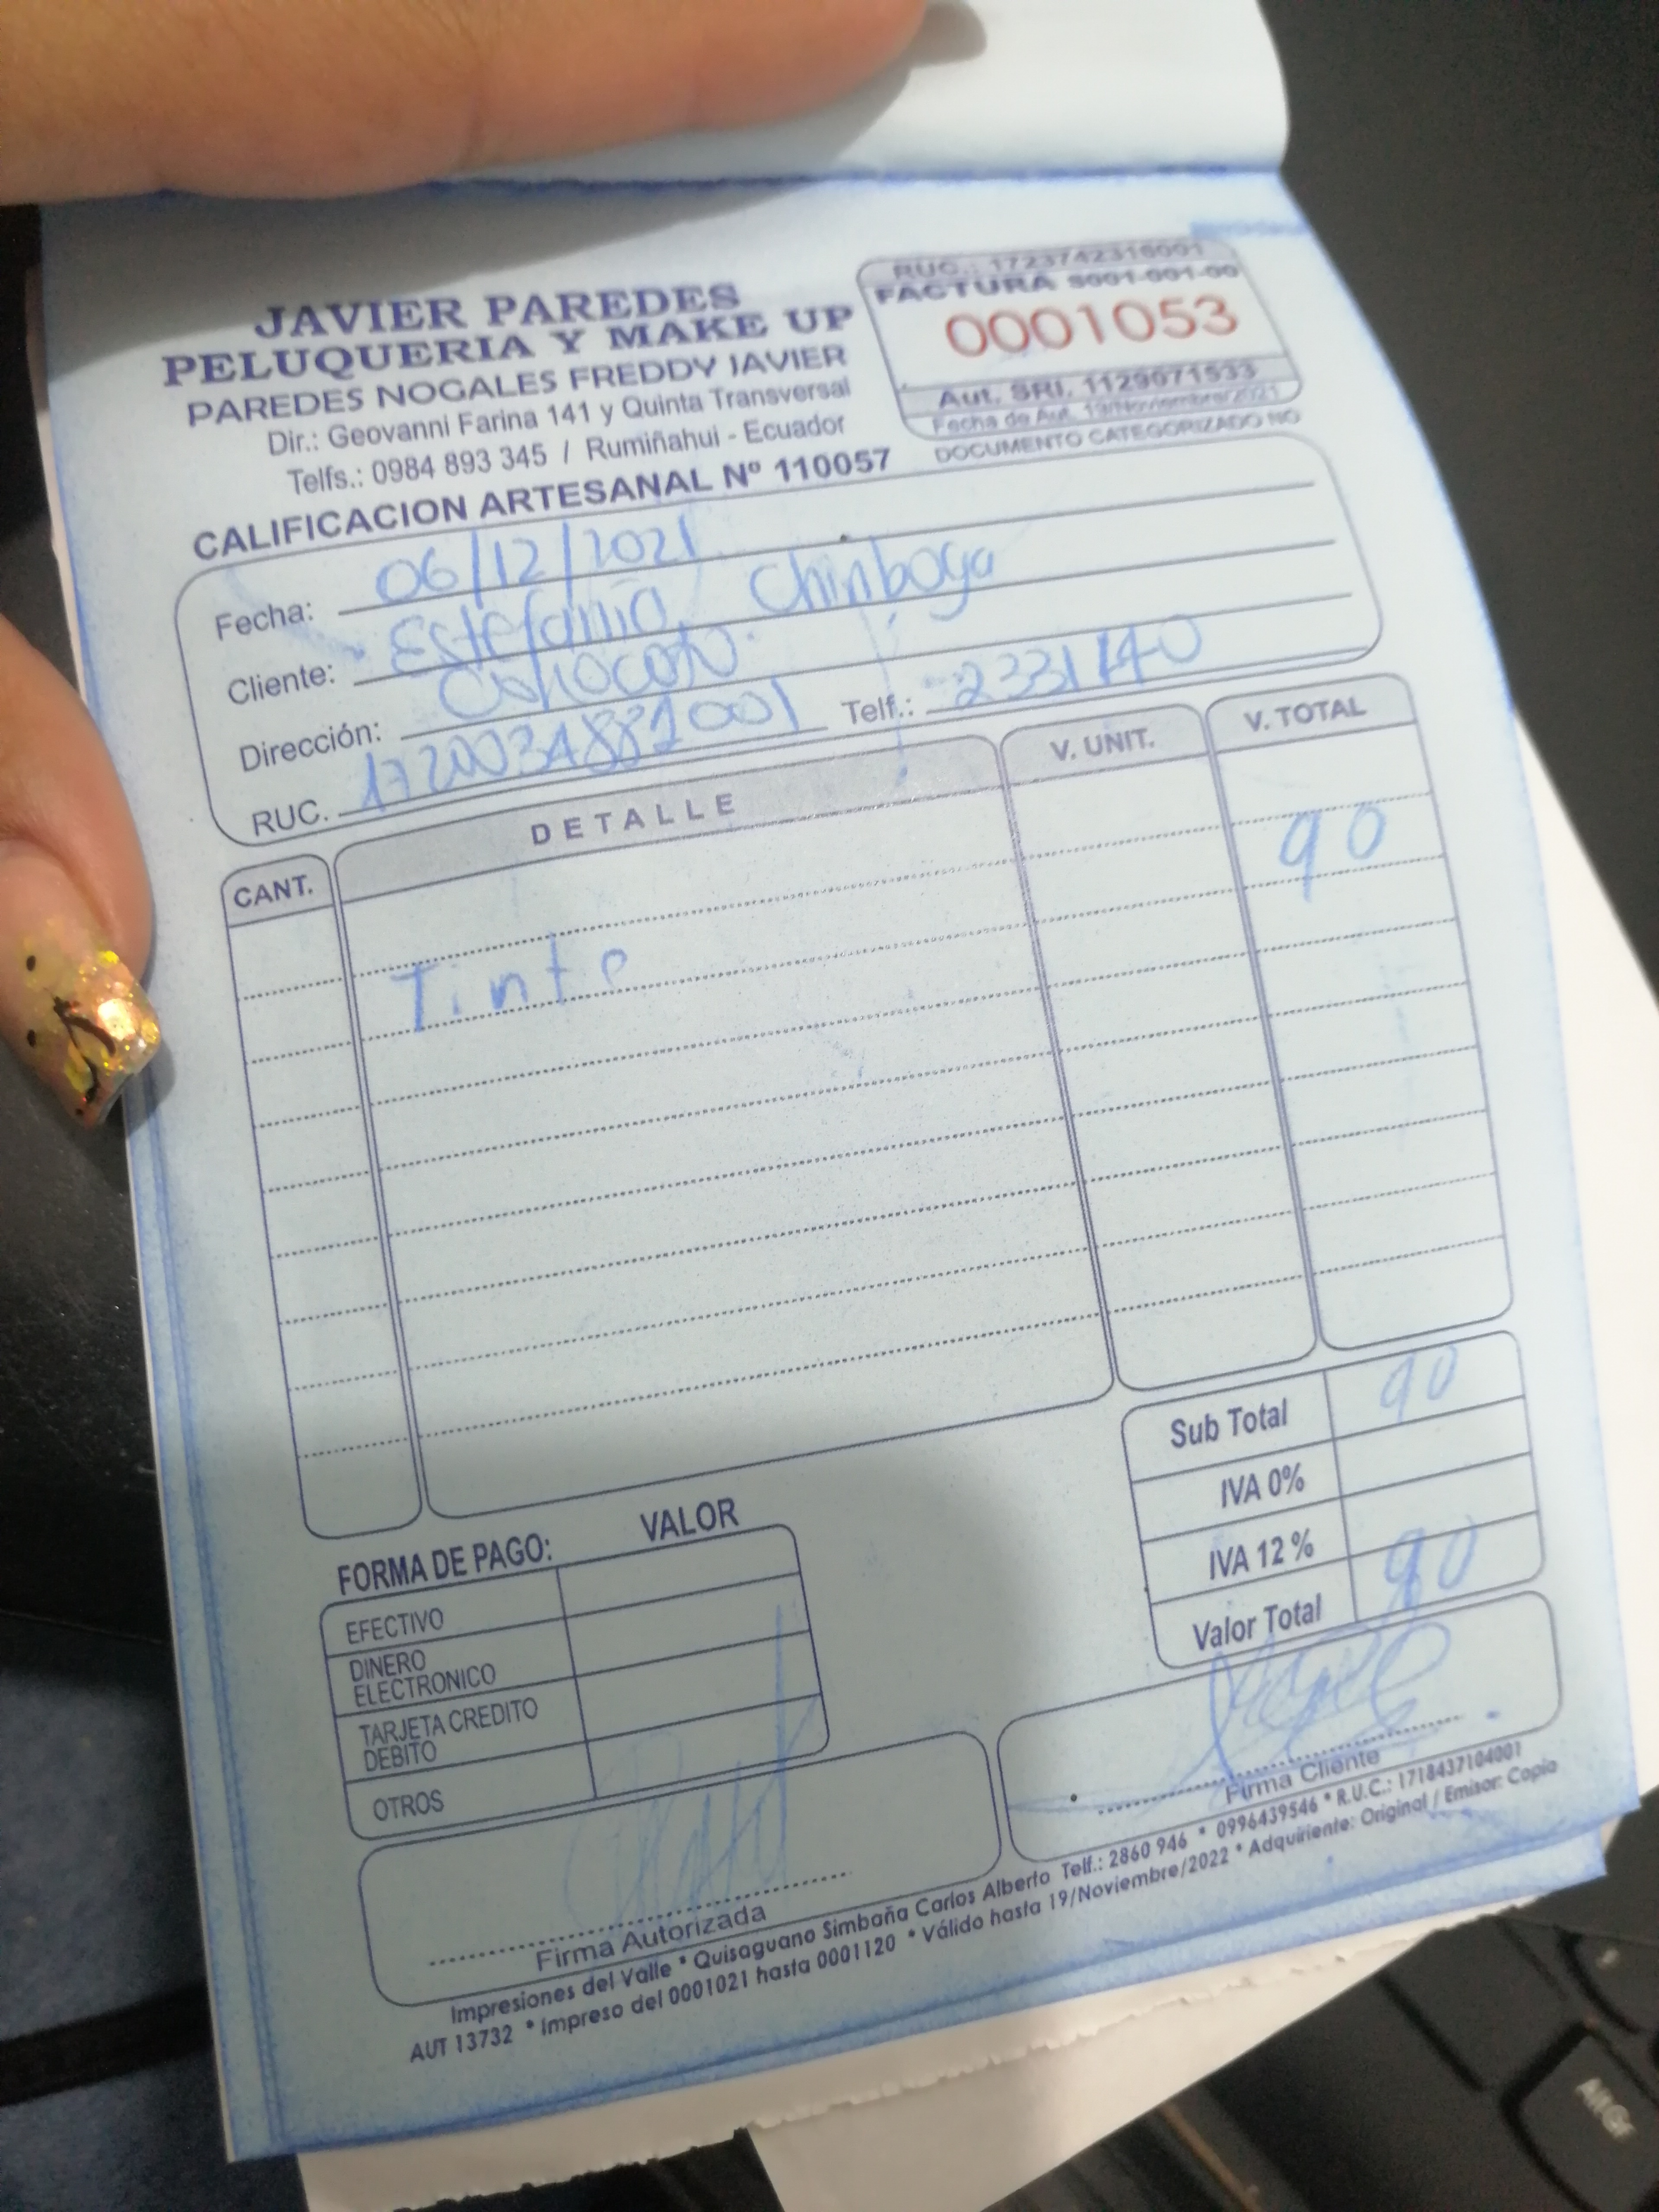 JAVIER PAREDES
PELUQUERIA Y MAKE UP
PAREDES NOGALES FREDDY JAVIER
Dir.: Geovanni Farina 141 y Quinta Transversal
Telfs.: 0984 893 345 / Rumiñahui - Ecuador
CALIFICACION ARTESANAL Nº 110057
RUC.: 1723742316001
FACTURA S001-001-00
0001053
Aut. SRI. 1129671533
Fecha de Aut. 19/Noviembre/2021
DOCUMENTO CATEGORIZADO NO
Fecha: 06/12/2021
Cliente: Estefania Chiriboga
Dirección:
RUC. 1720034882001 Telf.: 2331140
CANT. DETALLE V. UNIT. V. TOTAL
Tinte 90
Sub Total 90
IVA 0%
IVA 12 %
Valor Total 90
FORMA DE PAGO: VALOR
EFECTIVO
DINERO ELECTRONICO
TARJETA CREDITO DEBITO
OTROS
Firma Autorizada
Firma Cliente
Impresiones del Valle * Quisaguano Simbaña Carlos Alberto Telf.: 2860 946 * 0996439546 * R.U.C.: 1718437104001
AUT 13732 * Impreso del 0001021 hasta 0001120 * Válido hasta 19/Noviembre/2022 * Adquiriente: Original / Emisor: Copia
AltGr